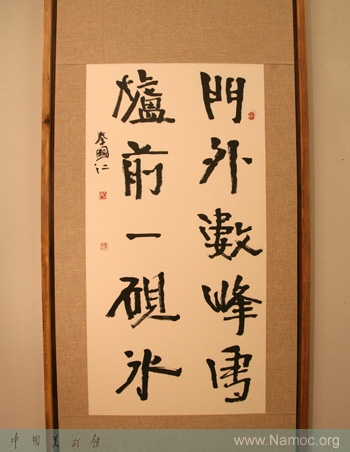 門外數峰雪
爐前一硯冰
李國仁
中国美术馆
www.Namoc.org